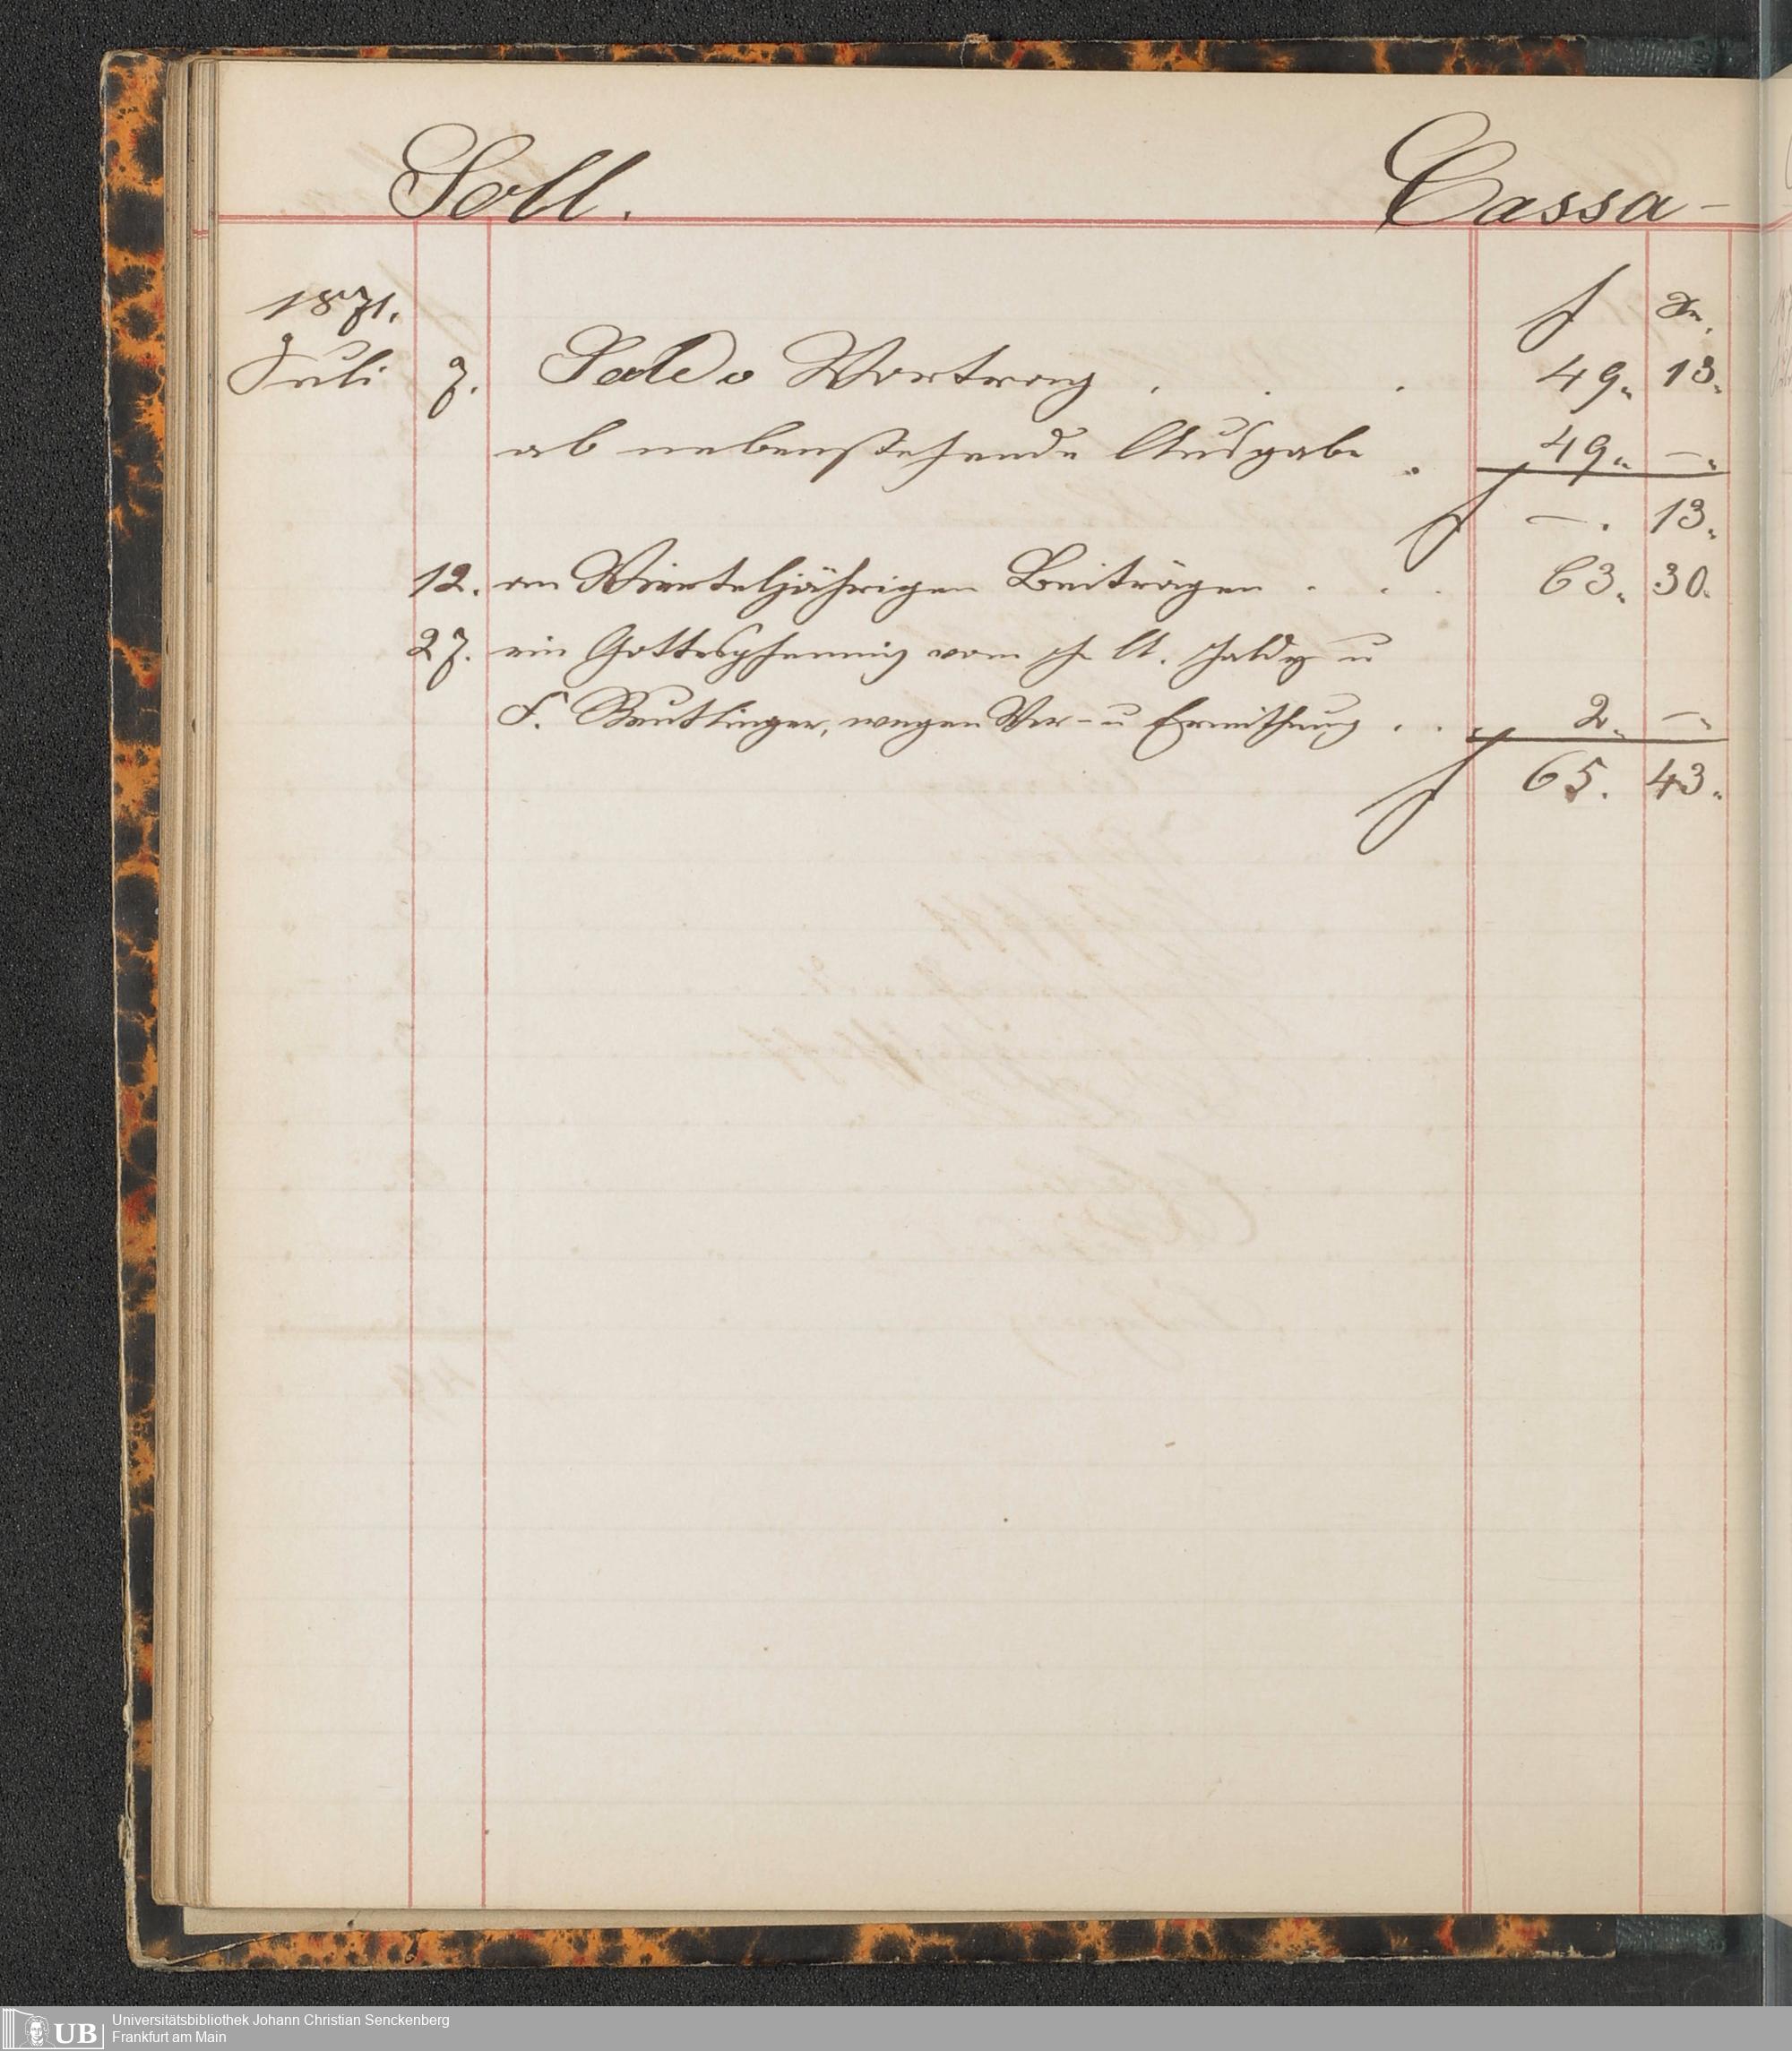 Soll. Cassa-
1871. f xr.
Juli 7. Saldo Vortrag . . . 49. 13.
ab nebenstehende Ausgabe . 49. —.
f —. 13.
12. an Vierteljährigen Beiträgen . . . 63. 30.
27. ein Gottespfennig vom H. A. u
F. Reutlinger, wegen Ver- u Ermithung . . . 2. —.
f 65. 43.
UB Universitätsbibliothek Johann Christian Senckenberg
Frankfurt am Main